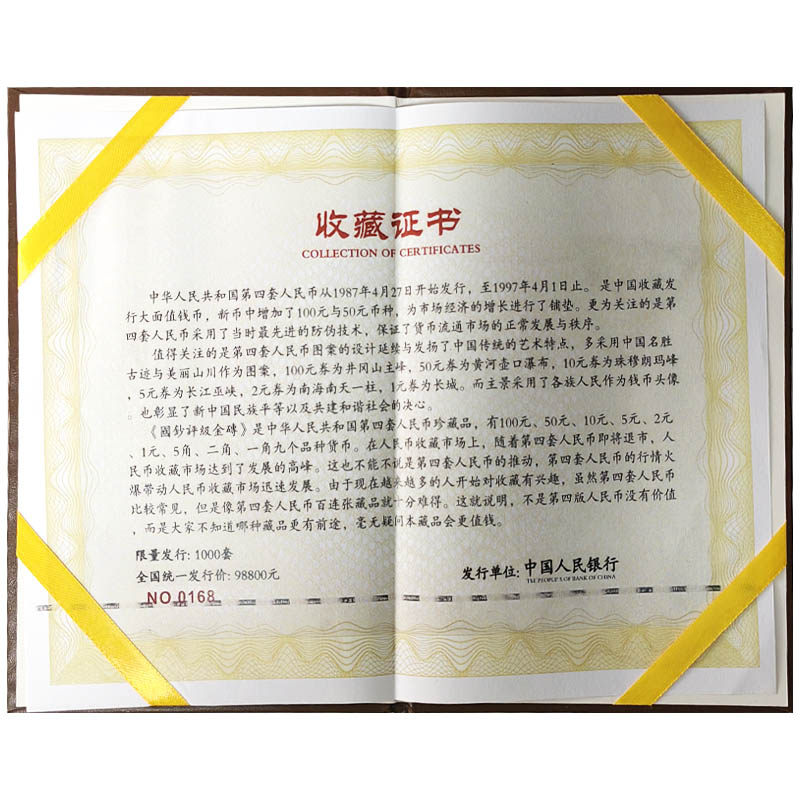 收藏证书
COLLECTION OF CERTIFICATES
中华人民共和国第四套人民币从1987年4月27日开始发行，至1997年4月1日止。是中国收藏发
行大面值钱币，新币中增加了100元与50元币种，为市场经济的增长进行了铺垫。更为关注的是第
四套人民币采用了当时最先进的防伪技术，保证了货币流通市场的正常发展与秩序。
值得关注的是第四套人民币图案的设计延续与发扬了中国传统的艺术特点，多采用中国名胜
古迹与美丽山川作为图案，100元券为井冈山主峰，50元券为黄河壶口瀑布，10元券为珠穆朗玛峰
，5元券为长江巫峡，2元券为南海南天一柱，1元券为长城。而主景采用了各族人民作为钱币头像
。也彰显了新中国民族平等以及共建和谐社会的决心。
《國鈔評級金磚》是中华人民共和国第四套人民币珍藏品，有100元、50元、10元、5元、2元
、1元、5角、二角、一角九个品种货币。在人民币收藏市场上，随着第四套人民币即将退市，人
民币收藏市场达到了发展的高峰。这也不能不说是第四套人民币的推动，第四套人民币的行情火
爆带动人民币收藏市场迅速发展。由于现在越来越多的人开始对收藏有兴趣，虽然第四套人民币
比较常见，但是像第四套人民币百连张藏品就十分难得。这就说明，不是第四版人民币没有价值
，而是大家不知道哪种藏品更有前途，毫无疑问本藏品会更值钱。
限量发行：1000套
全国统一发行价：98800元
NO.0168
发行单位：中国人民银行
THE PEOPLE'S OF BANK OF CHINA